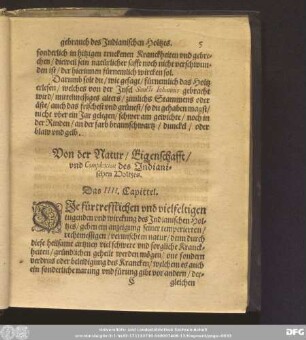 gebrauch des Indianischen Holtzes. 5
sonderlich in hitzigen truckenen Kranckheiten vnd gebre-
chen / dieweil sein natürlicher safft noch nicht verschwun-
den ist / der hierinnen fürnemlich wircken sol.
Darumb solt du / wie gesagt / fürnemlich das Holtz
erlesen / welches von der Insel Sancti Johannis gebracht
wird / mittelmessiges alters / zimlichs Stammens oder
Asts / auch das frischest vnd grünest / so du gehaben magst /
nicht vber ein Jar gelegen / schwer am gewichte / noch in
der Rinden / an der farb braunschwartz / dunckel / oder
blaw vnd gelb.
Von der Natur / Eigenschafft /
vnd Complexion des Indiani-
schen Holtzes.
Das IIII. Capittel.
Die fürtrefflichen vnd vielfeltigen
tugenden vnd wirckung des Indianischen Hol-
tzes / geben ein anzeigung seiner temperierten /
rechtmessigen / vermischten natur / denn durch
diese heilsame artzney viel schwere vnd sorgliche Kranck-
heiten / gründtlichen geheilt werden mögen / one sondern
verdruss oder beleidigung des Krancken / welchen es auch
ein sonderliche narung vnd fürung gibt vor andern / der-
gleichen